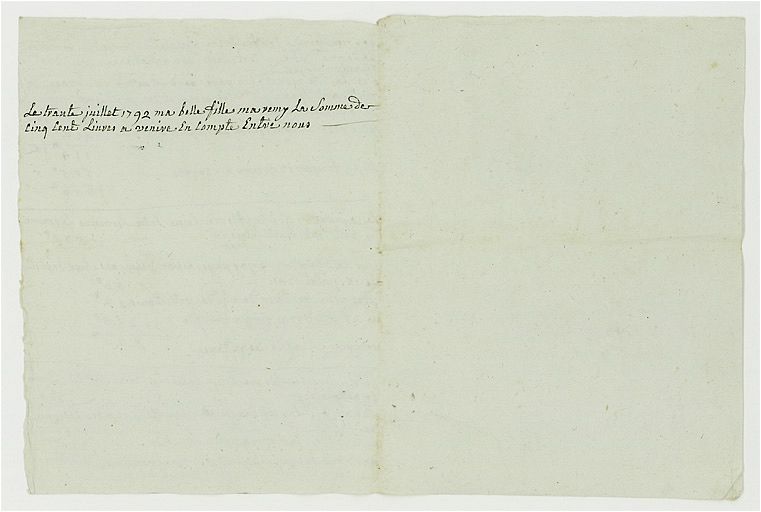 Le trante juillet 1792 ma belle fille ma remy La Somme de
Cinq Cent Livres a venire En Compte Entre nous